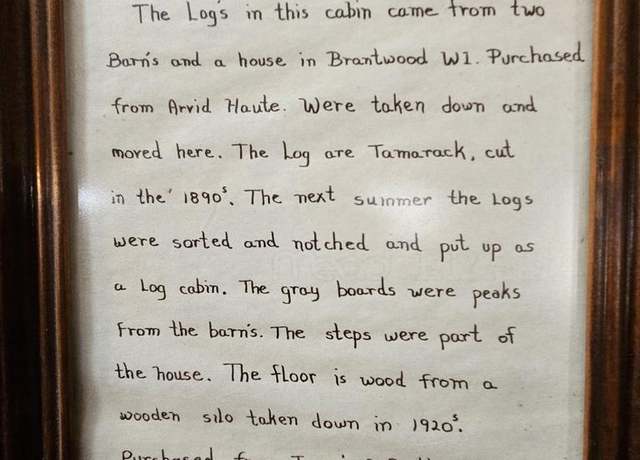 The Log's in this cabin came from two
Barn's and a house in Brantwood WI. Purchased
from Arvid Haute. Were taken down and
moved here. The Log are Tamarack, cut
in the' 1890s. The next summer the Logs
were sorted and notched and put up as
a Log cabin. The gray boards were peaks
From the barn's. The steps were part of
the house. The floor is wood from a
wooden silo taken down in 1920s.
Purchased